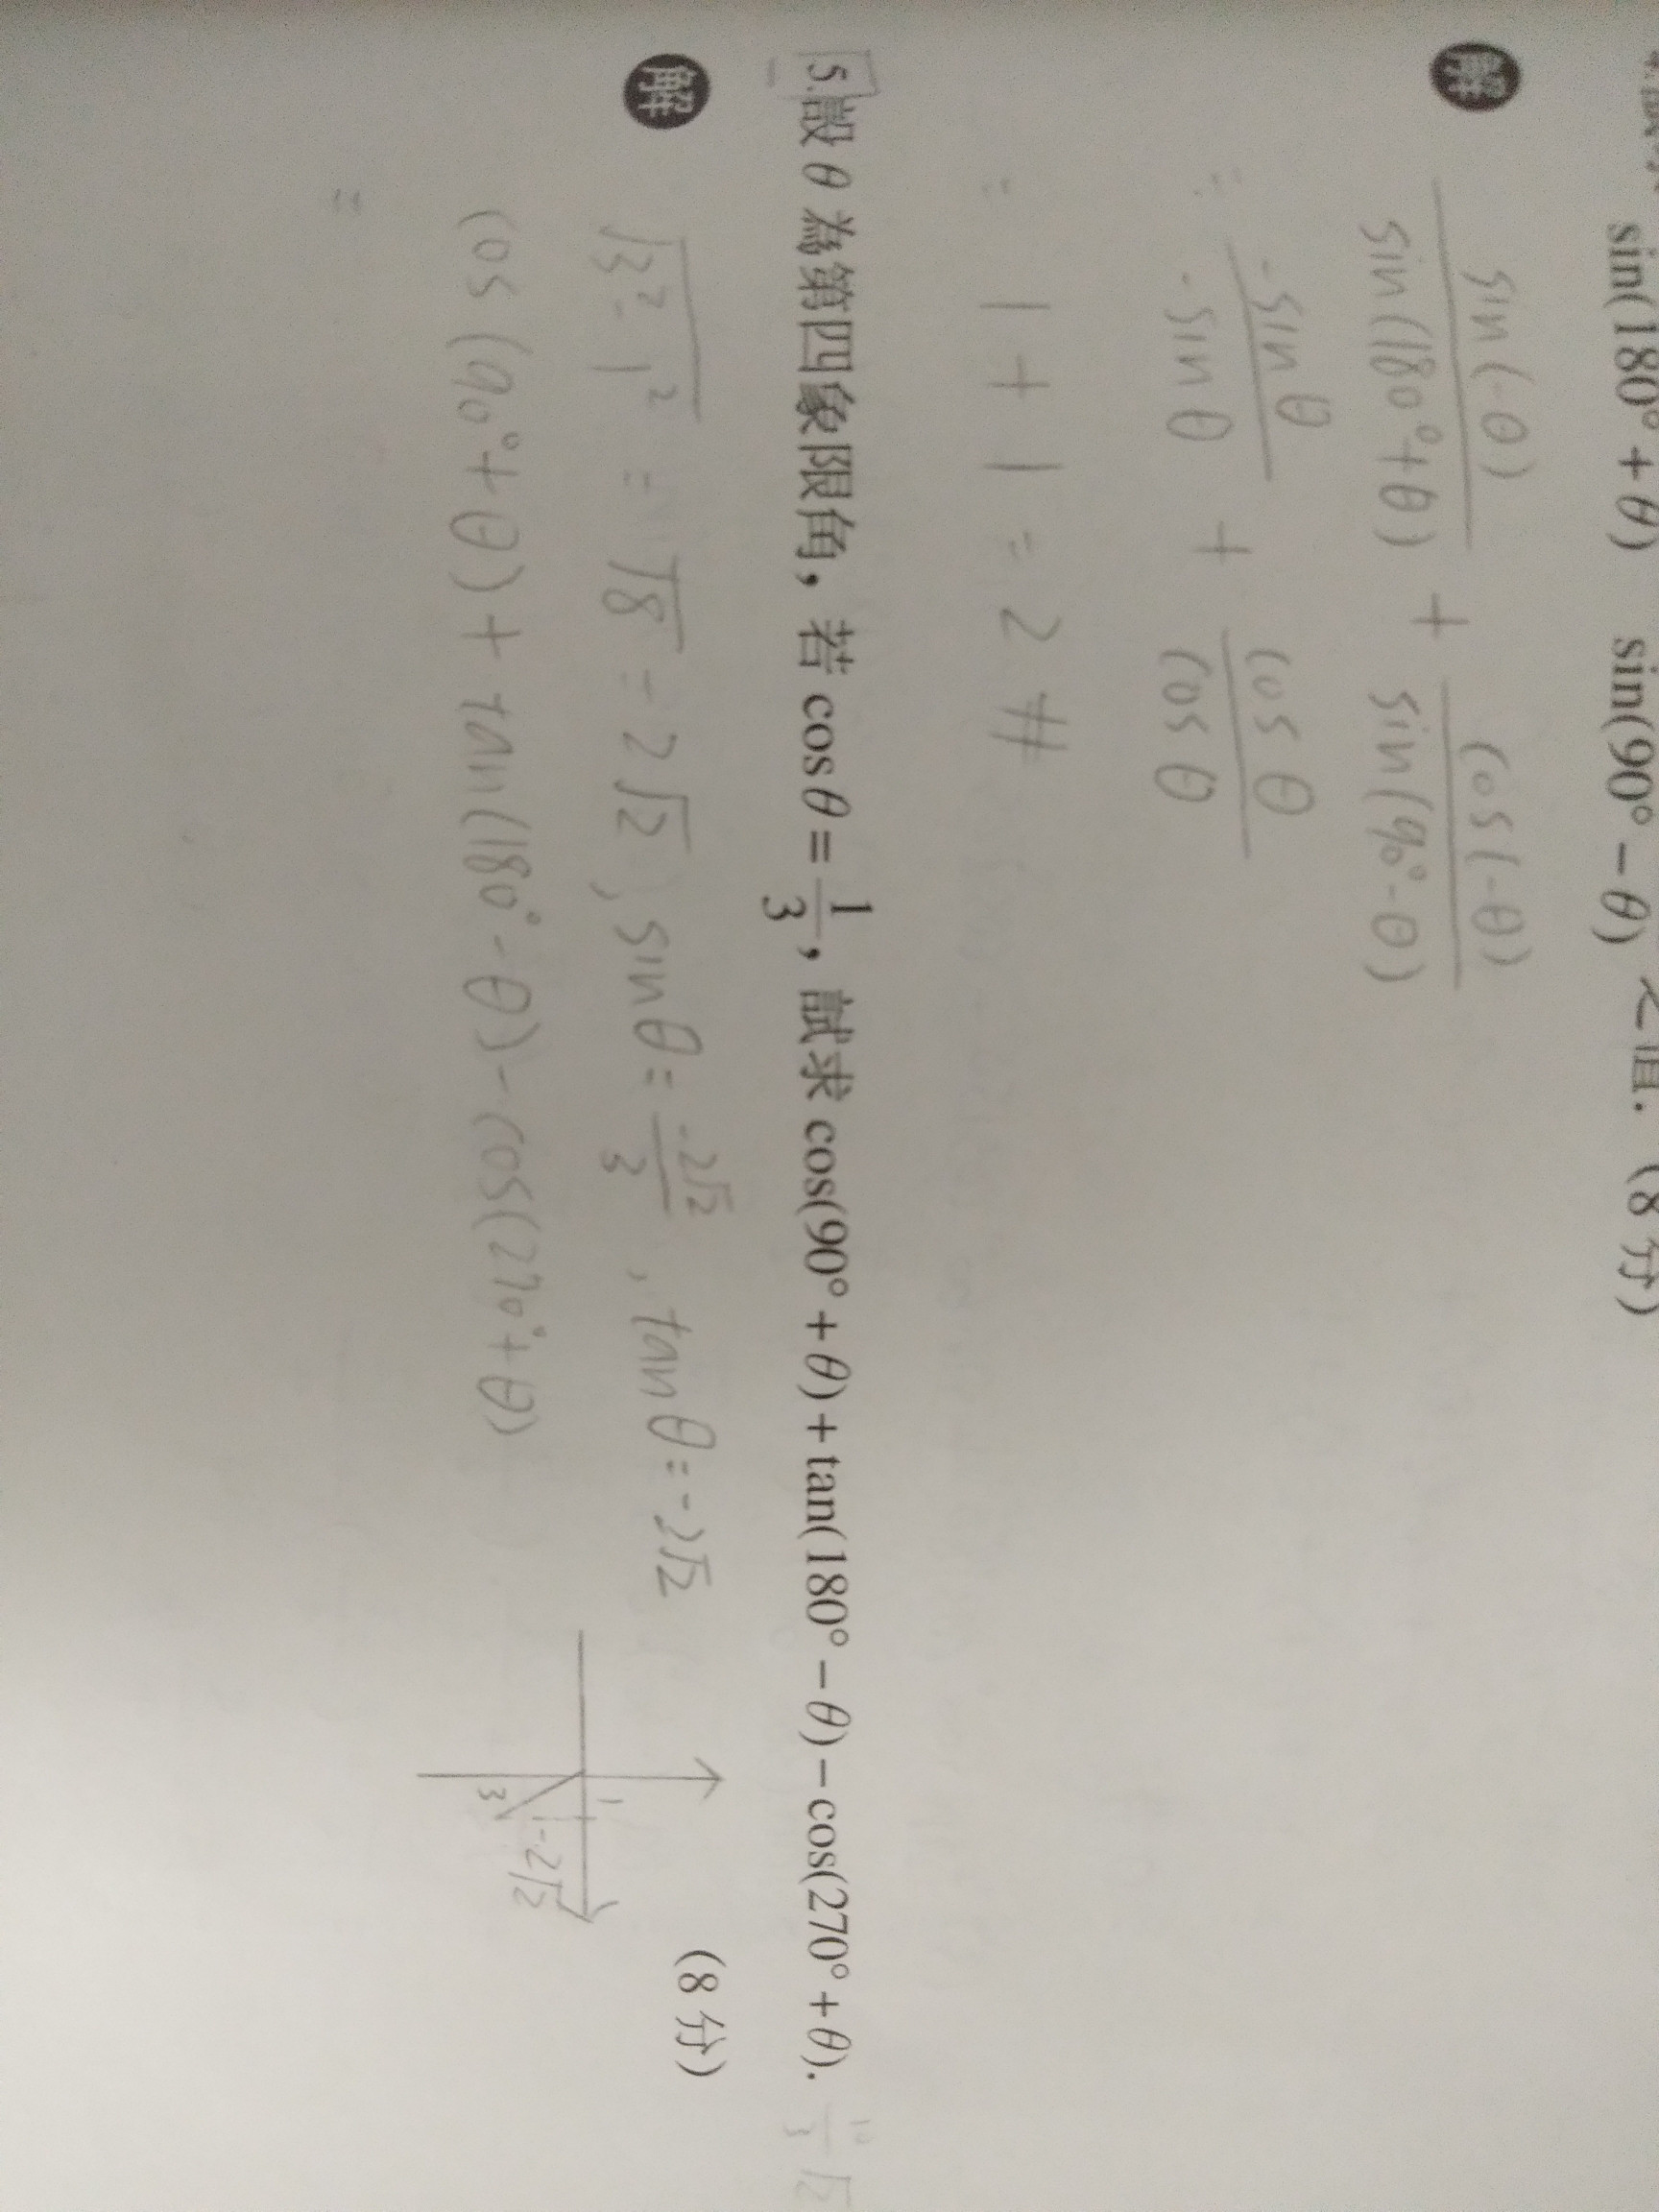 sin(180° + θ) sin(90° − θ) 之值. (8 分)
解 sin(-θ)/sin(180°+θ) + cos(-θ)/sin(90°-θ)
= -sinθ/-sinθ + cosθ/cosθ
= 1 + 1 = 2 #
5.設 θ 為第四象限角，若 cosθ = 1/3，試求 cos(90° + θ) + tan(180° − θ) − cos(270° + θ).
10/3 √2
(8 分)
解 √3²-1² = √8 = 2√2, sinθ = -2√2/3, tanθ = -2√2
1
3
-2√2
cos(90°+θ) + tan(180°-θ) - cos(270°+θ)
=